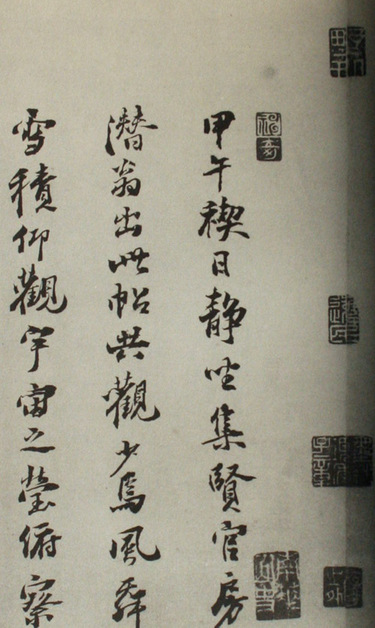 甲午禊日静坐集賢官房
潛翁出此帖共觀少焉風舞
雪積仰觀宇宙之瑩俯察